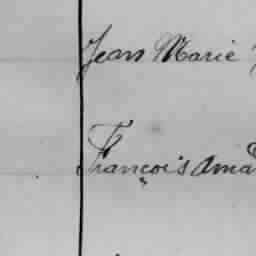 Jean Marie
François Ama